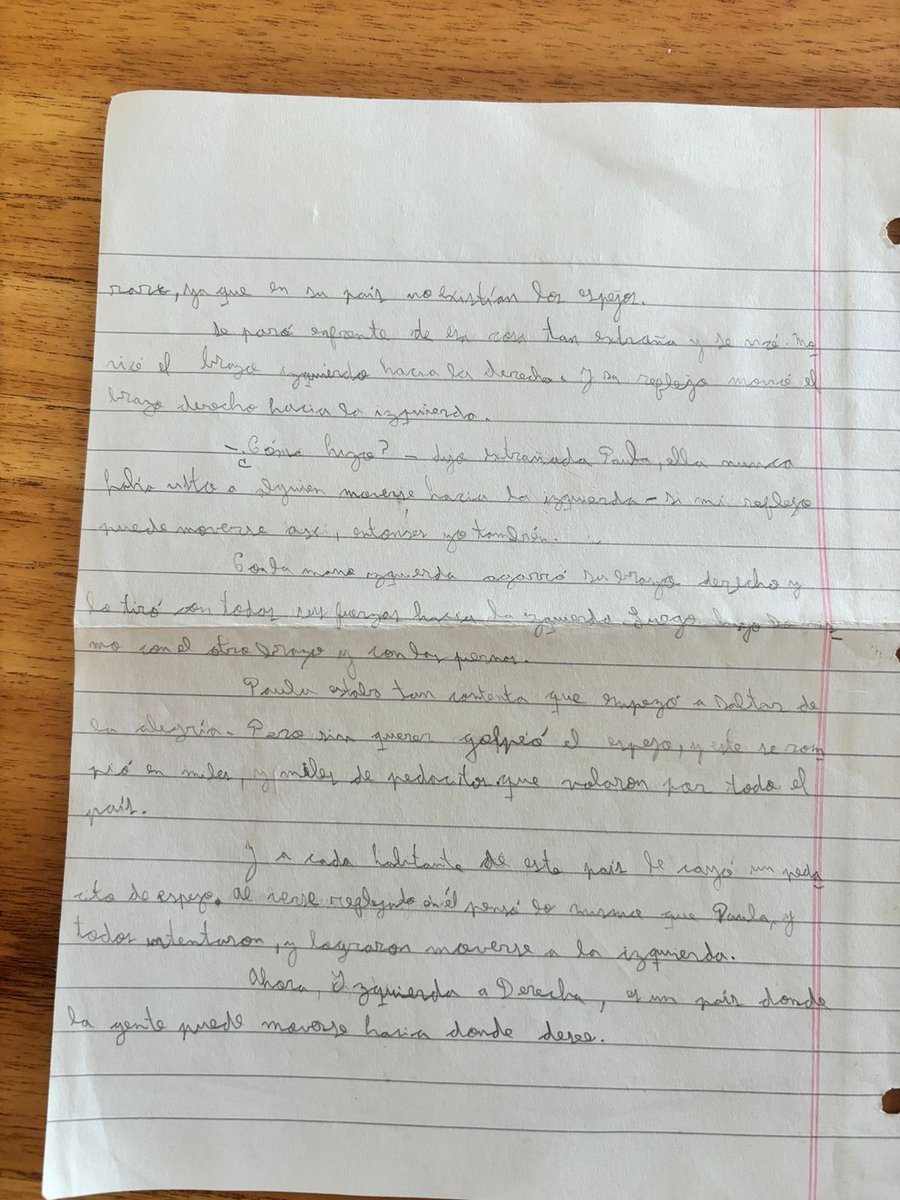 raro, ya que en su país no existían los espejos.
Se paró enfrente de esa cosa tan extraña y se miró. Mo
vió el brazo izquierdo hacia la derecha. Y su reflejo movió el
brazo derecho hacia la izquierda.
-¿Cómo hizo? - dijo extrañada Paula, ella nunca
había visto a alguien moverse hacia la izquierda - si mi reflejo
puede moverse así, entonses yo también.
Con la mano izquierda agarró su brazo derecho y
lo tiró con todas sus fuerzas hacia la izquierda. Luego hizo lo mis
mo con el otro brazo y con las piernas.
Paula estaba tan contenta que empezó a saltar de
la alegría. Pero sin querer golpeó el espejo, y este se rom
pió en miles, y miles de pedacitos que volaron por todo el
país.
Y a cada habitante de este país le cayó un peda
cito de espejo. Al verse reflejado en él pensó lo mismo que Paula, y
todos intentaron, y lograron moverse a la izquierda.
Ahora, Izquierda a Derecha, es un país donde
la gente puede moverse hacia donde desee.